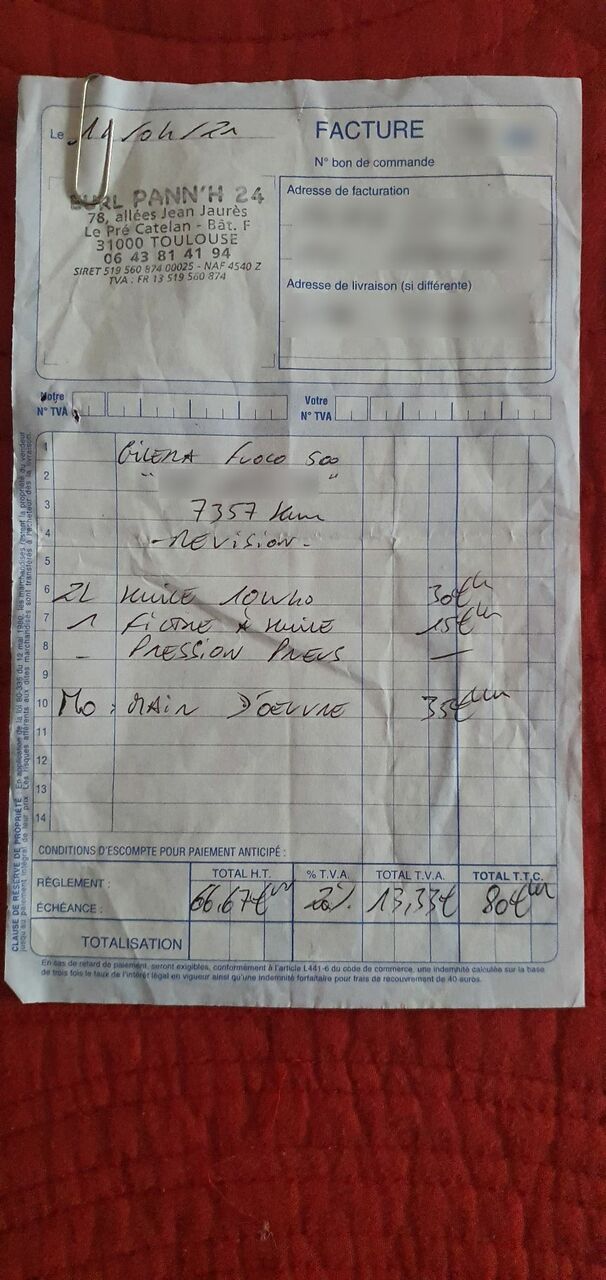 Le 14/04/21
FACTURE
N° bon de commande
EURL PANN'H 24
78, allées Jean Jaurès
Le Pré Catelan - Bât. F
31000 TOULOUSE
06 43 81 41 94
SIRET 519 560 874 00025 - NAF 4540 Z
TVA : FR 13 519 560 874
Adresse de facturation
Adresse de livraison (si différente)
Notre N° TVA
Votre N° TVA
1 GILERA FUOCO 500
2 " "
3 7357 Km
4 - REVISION -
5
6 2L HUILE 10W40 30€
7 1 FILTRE A HUILE 15€
8 - PRESSION PNEUS —
9
10 MO : MAIN D'OEUVRE 35€
11
12
13
14
CLAUSE DE RÉSERVE DE PROPRIÉTÉ : En application de la loi 80-335 du 12 mai 1980, les marchandises restent la propriété du vendeur
jusqu'au paiement intégral de leur prix. Les risques afférents aux dites marchandises sont transférés à l'acheteur dès la livraison.
CONDITIONS D'ESCOMPTE POUR PAIEMENT ANTICIPÉ :
RÈGLEMENT :
ÉCHÉANCE :
TOTAL H.T. % T.V.A. TOTAL T.V.A. TOTAL T.T.C.
66,67€ 20% 13,33€ 80€
TOTALISATION
En cas de retard de paiement, seront exigibles, conformément à l'article L441-6 du code de commerce, une indemnité calculée sur la base
de trois fois le taux de l'intérêt légal en vigueur ainsi qu'une indemnité forfaitaire pour frais de recouvrement de 40 euros.